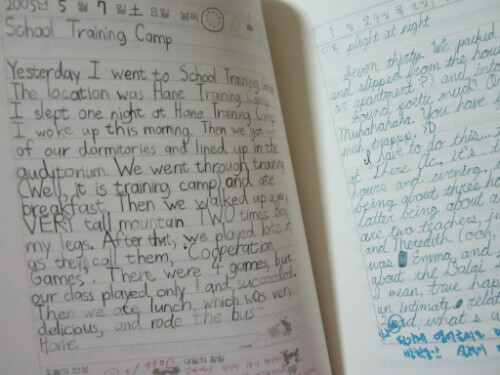 2005년 5월 7일 土요일 날씨
School Training Camp
Yesterday I went to School Training Camp
The location was Hane Training Camp.
I slept one night at Hane Training Camp.
I woke up this morning. Then we got out
of our dormitories and lined up in the
auditorium. We went through training
(Well, it is training camp) and ate
breakfast. Then we walked up a very,
VERY tall mountain TWO times. Boy,
my legs. After that, we played lots of,
as they call them, "Cooperation
Games". There were 4 games, but
our class played only 1 and succeeded.
Then we ate lunch, which was very
delicious, and rode the bus
Home.
오늘의 반성
내일의 할일
1월 24일
flight at night
Seven thirty. We packed
and slipped from the
or apartment :P) and into
sound poetic much?
Muhahahaha. You have
:D
I have to do this...
at There it's
hours and evening,
being about three
latter being about
are two teachers,
and Meredith (ooh,
was Emma, and
about the Dalai
I mean, true
an intimate
what's